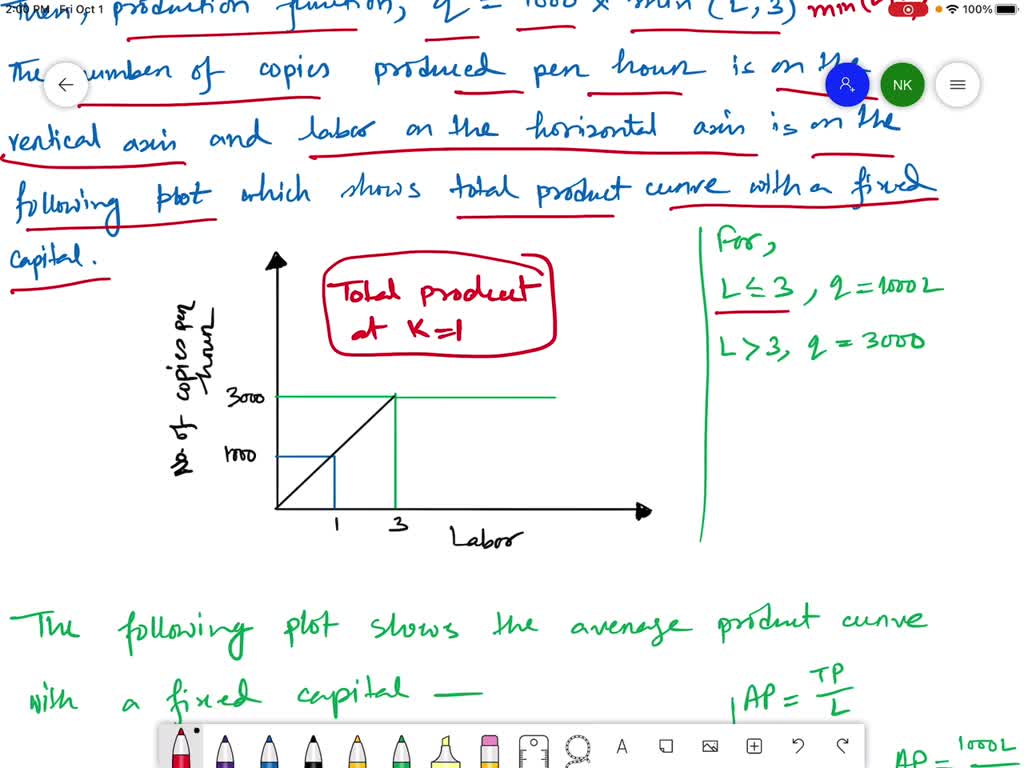 2:00 PM Fri Oct 1
100%
Then, production function, q = 1000 x min (L, 3)
The number of copies produced per hour is on the
NK
vertical axis and labor on the horizontal axis is on the
following plot which shows total product curve with a fixed
capital.
Total product
at K=1
No. of copies per
hour
3000
1000
1
3
Labor
For,
L ≤ 3, q = 1000L
L > 3, q = 3000
The following plot shows the average product curve
with a fixed capital —
AP = TP/L
AP = 1000L
A